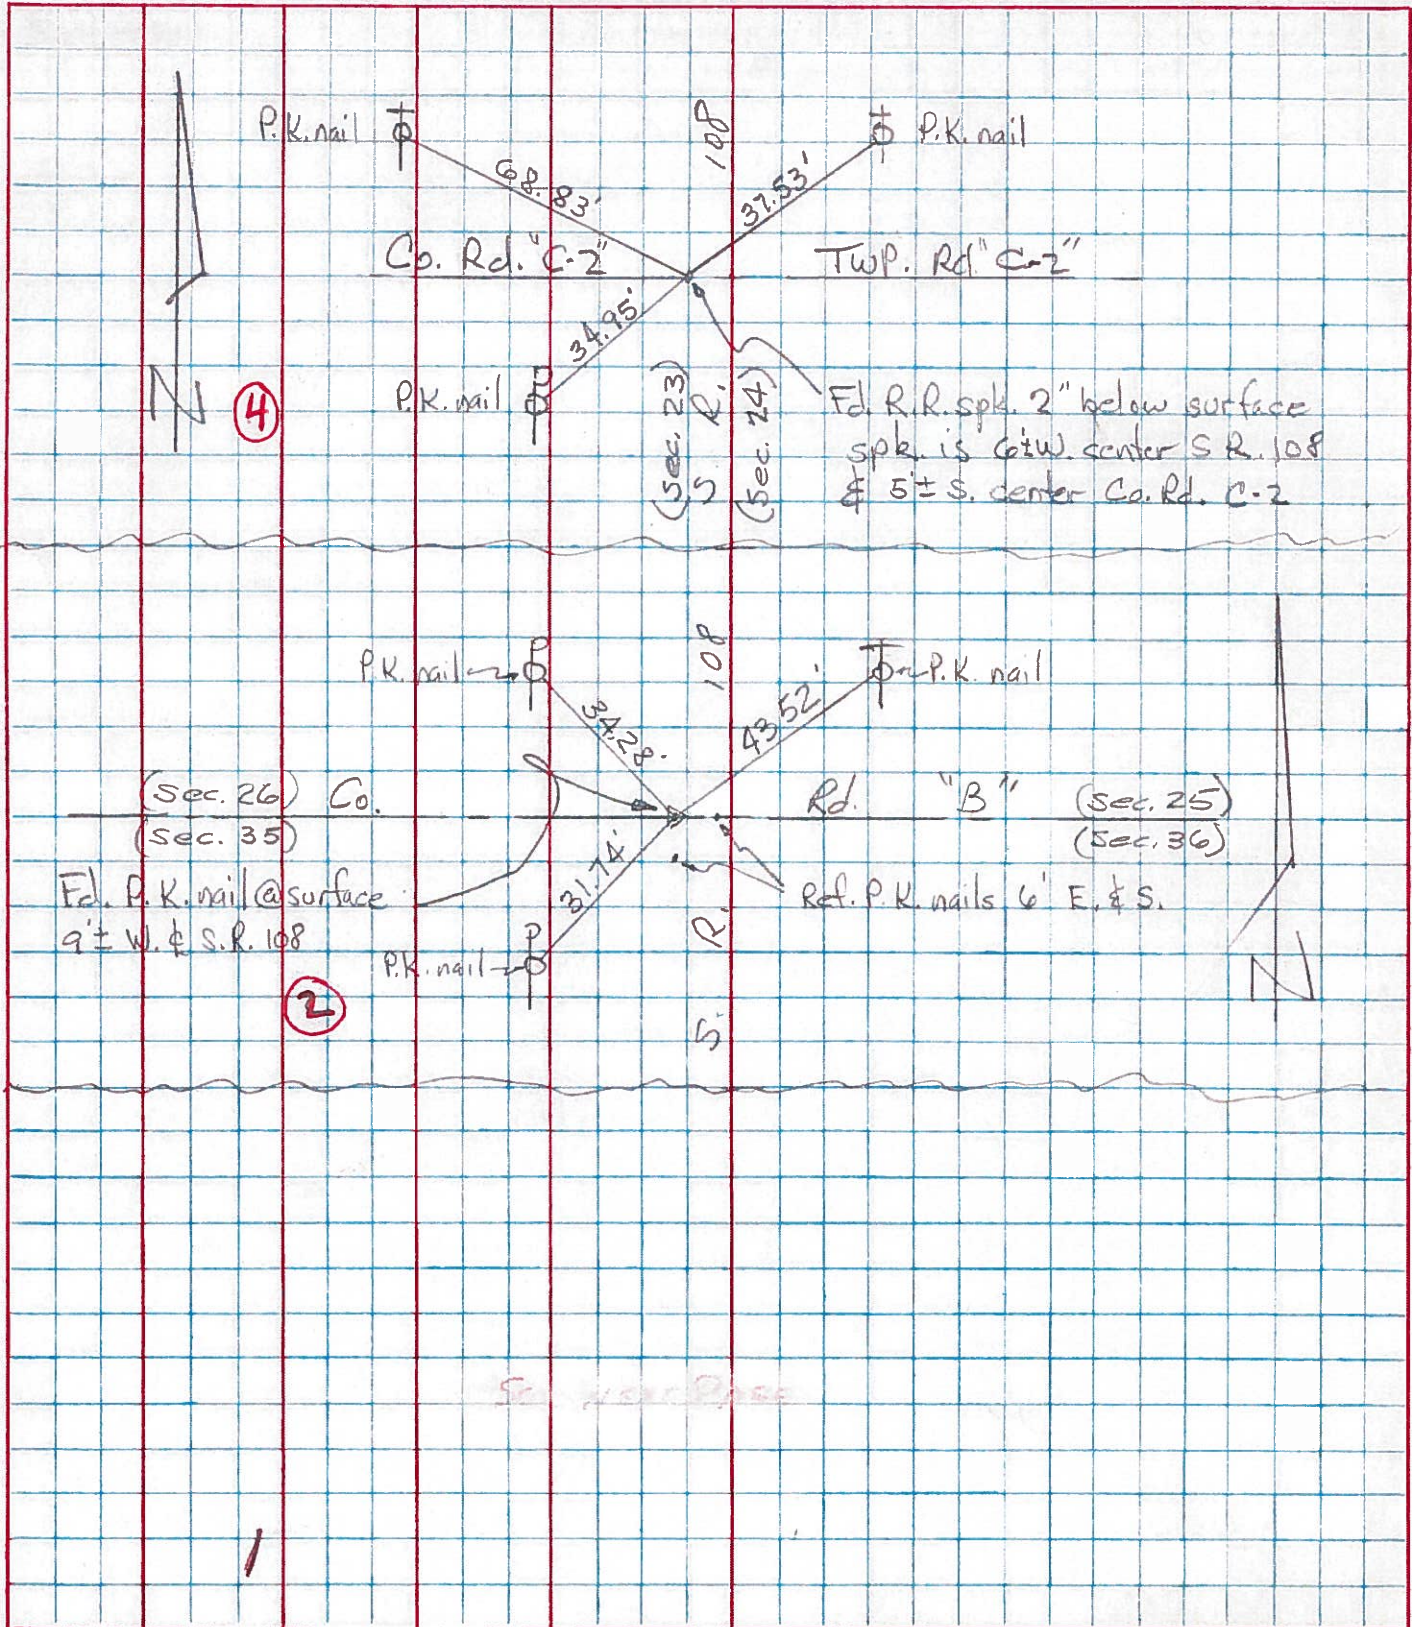 P.K. nail
108
P.K. nail
68.83'
37.53'
Co. Rd. "C-2"
TWP. Rd "C-2"
34.95'
P.K. nail
N
4
(Sec. 23)
S. R.
(Sec. 24)
Fd. R.R. spk. 2" below surface
spk. is 6'±W. center S.R. 108
& 5'± S. center Co. Rd. C-2
P.K. nail
108
P.K. nail
34.28'
43.52'
(Sec. 26) Co.
Rd. "B" (Sec. 25)
(Sec. 35)
(Sec. 36)
31.74'
Fd. P.K. nail @ surface
9'± W. ¢ S.R. 108
Ref. P.K. nails 6' E. & S.
P.K. nail
S. R.
N
2
1